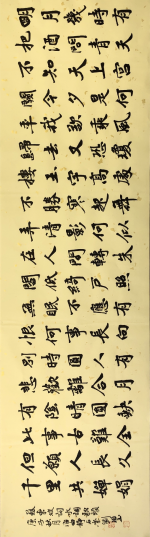 明月幾時有
把酒問青天
不知天上宮
闕今夕是何
年我欲乘風
歸去又恐瓊
樓玉宇高處
不勝寒起舞
弄清影何似
在人間轉朱
閣低綺戶照
無眠不應有
恨何事長向
別時圓人有
悲歡離合月
有陰晴圓缺
此事古難全
但願人長久
千里共嬋娟
蘇東坡詞水調歌頭